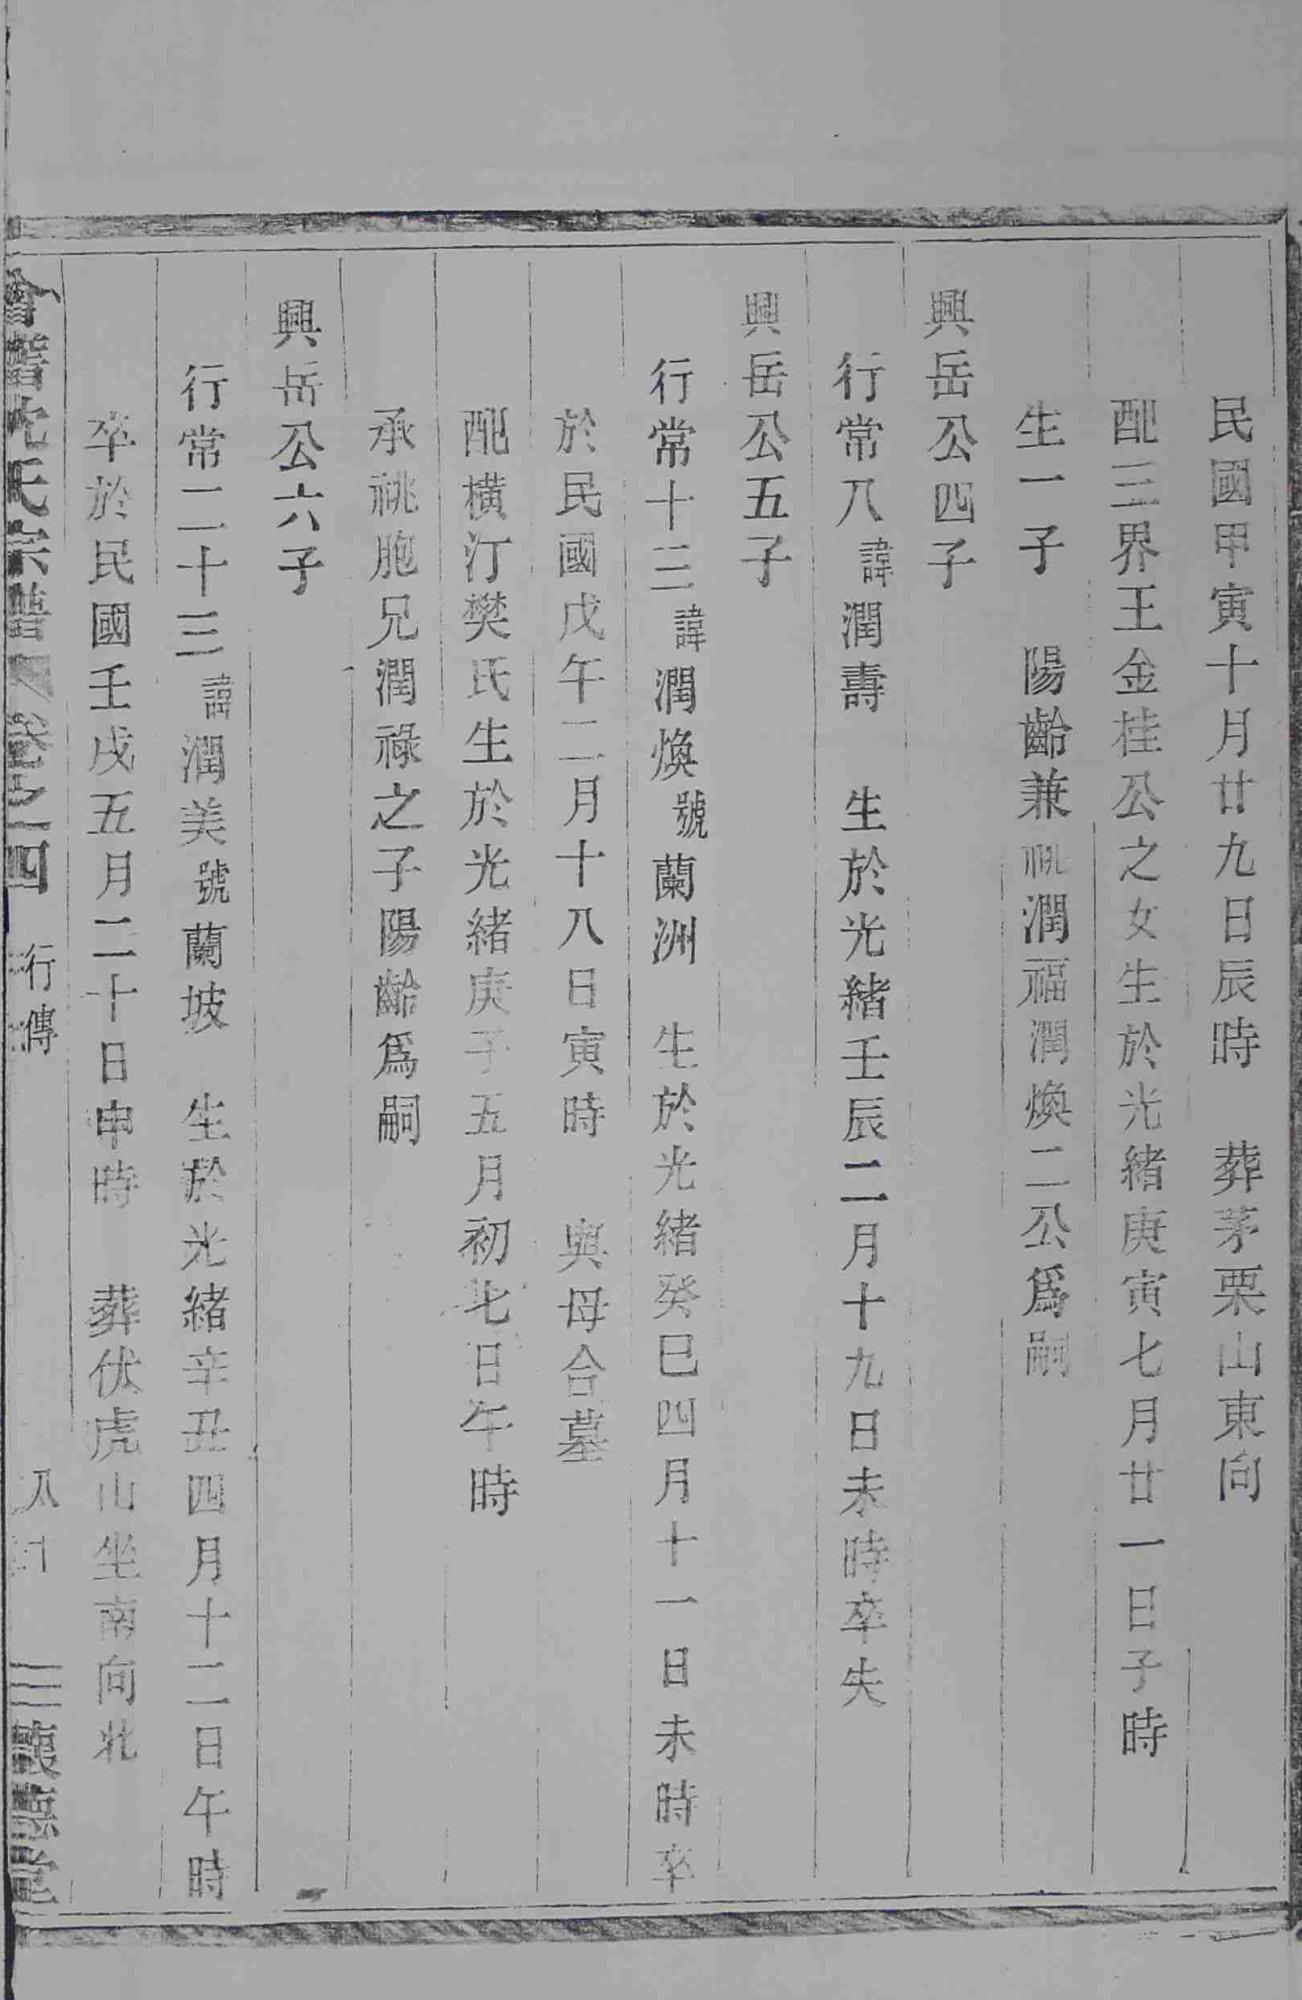 民國甲寅十月廿九日辰時　葬茅栗山東向
配三界王金桂公之女生於光緒庚寅七月廿一日子時
生一子　陽齡兼祧潤福潤煥二公爲嗣
興岳公四子
行常八諱潤壽　生於光緒壬辰二月十九日未時卒失
興岳公五子
行常十三諱潤煥號蘭洲　生於光緒癸巳四月十一日未時卒
於民國戊午二月十八日寅時　與母合墓
配橫汀樊氏生於光緒庚子五月初七日午時
承祧胞兄潤祿之子陽齡爲嗣
興岳公六子
行常二十三諱潤美號蘭坡　生於光緒辛丑四月十二日午時
卒於民國壬戌五月二十日申時　葬伏虎山坐南向北
會稽沈氏宗譜　卷之四　行傳　八十　懷德堂